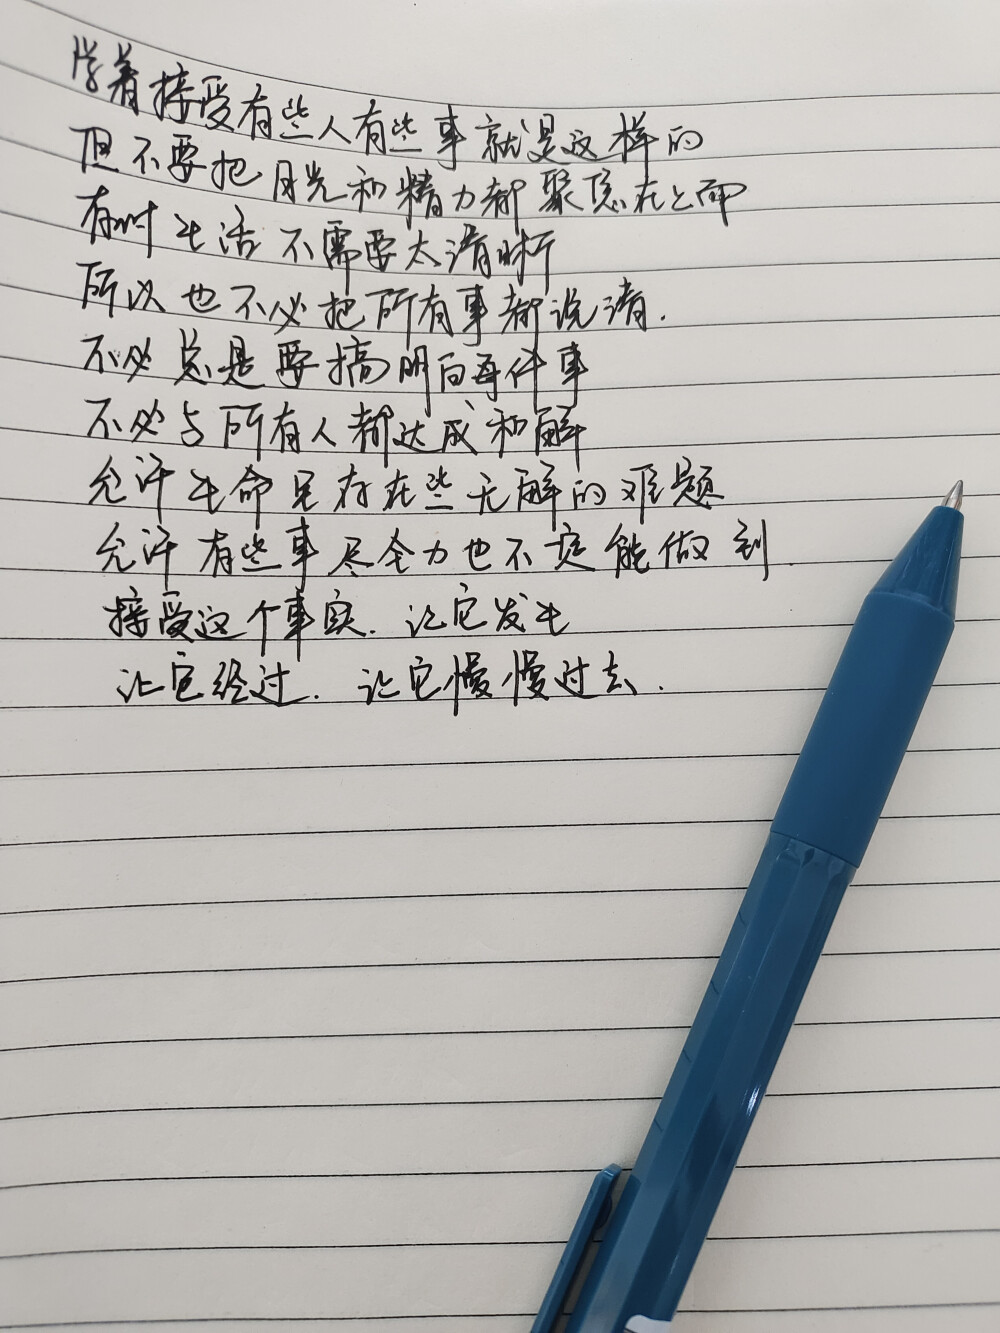 学着接受有些人有些事就是这样的
但不要把目光和精力都聚焦在上面
有时生活不需要太清晰
所以也不必把所有事都说清.
不必总是要搞明白每件事
不必与所有人都达成和解
允许生命里存在些无解的难题
允许有些事尽全力也不一定能做到.
接受这个事实.让它发生
让它经过.让它慢慢过去.